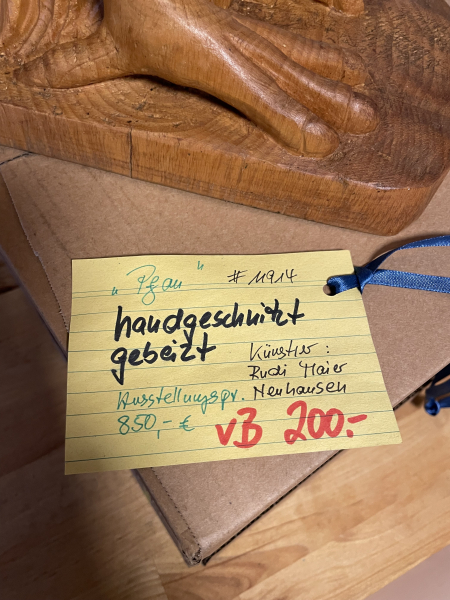 „Pfau" # 11914
handgeschnitzt
gebeizt
Künstler:
Rudi Maier
Neuhausen
Ausstellungspr.
850,- €
VB 200.-